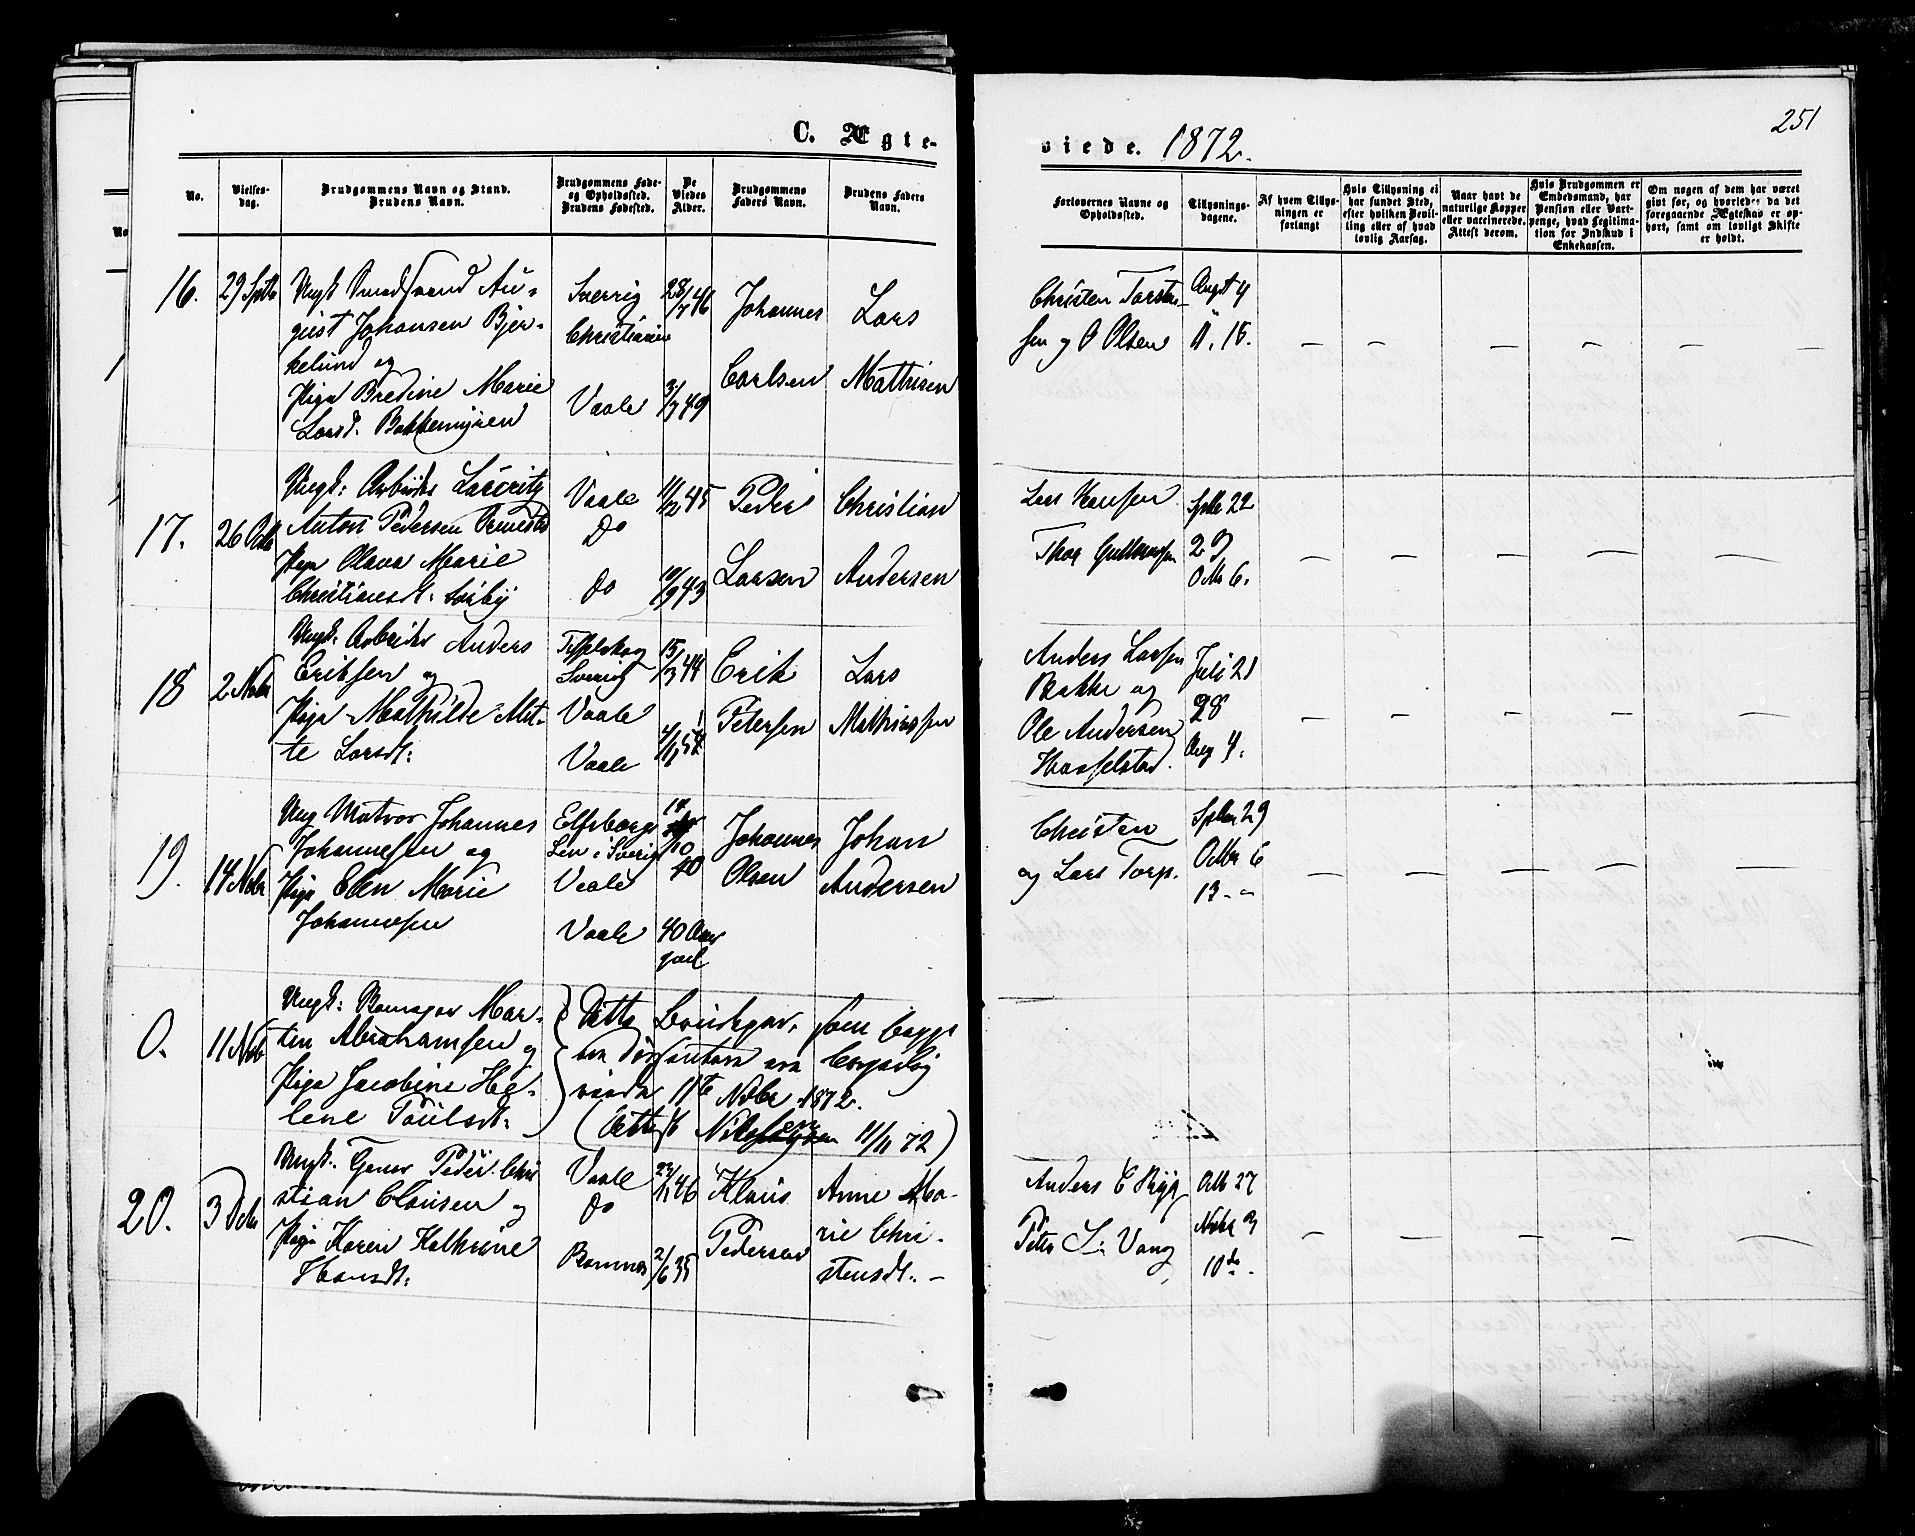 251
C. Ægte-
viede. 1872.
No.
Vielses-
dag.
Brudgommens Navn og Stand.
Brudens Navn.
Brudgommens Føde-
og Opholdssted.
Brudens Fødested.
De
Viedes
Alder.
Brudgommens
Faders Navn.
Brudens Faders
Navn.
Forlovernes Navne og
Opholdssted.
Tillysnings-
dagene.
Af hvem Tillys-
ningen er
forlangt
Hvis Tillysning ei
har fundet Sted,
efter hvilken Bevil-
ling eller af hvad
lovlig Aarsag.
Naar havt de
naturlige Kopper
eller vaccinerede.
Attest derom.
Hvis Brudgommen er
Embedsmand, har
Pension eller Vart-
penge, hvad Legitima-
tion for Indskud i
Enkekassen.
Om nogen af dem har været
gift før, og hvorledes da det
foregaaende Ægteskab er op-
hørt, samt om lovligt Skifte
er holdt.
16.
29 Septb
Ungk. Au-
gust Johansen Bjer-
kelund og
Pige Bredine Marie
Larsd. Bakkemyren
Sverrig
Christiania
Vaale
28/7 46
3/7 49
Johannes
Carlsen
Lars
Mathisen
Christen Torsten-
sen og O Olsen
Augst 4
11. 15.
17.
26 Octb
Ungk: Arbeider Lauritz
Anton Pedersen
Pige Olava Marie
Christiansdt. Sørby
Vaale
Do
Do
11/2 45
10/9 43
Peder
Larsen
Christian
Andersen
Lars Hansen
Thor Gulbransen
Septbr 22
29
Octb 6.
18
2 Nobr
Ungk. Arbeider Anders
Eriksen og
Pige Mathilde Met-
te Larsdt:
Tisselskog
Sverig
Vaale
Vaale
15/3 44
Erik
Petersen
Lars
Mathiassen
Anders Larsen
Bakke og
Ole Andersen
Hasselstad.
Juli 21
28
Aug 4.
19.
14 Nobr
Ung Matros Johannes
Johannesen og
Pige Elen Marie
Johannesen
Elfsborgs
Len i Sverig
Vaale
Vaale
40
40 Aar
gml
Johannes
Olsen
Johan
Andersen
Christen
og Lars Torp.
Septbr 29
Octbr 6
13 - "
0.
11 Nob
Ungk: Mar-
tin Abrahamsen og
Pige Jacobine He-
lene Poulsdt:
Dette Brudepar,
11te Nobr 1872.
11/11 72)
20.
3 Decbr
Ungk. Peder Chri
stian Clausen og
Pige Karen Kathrine
Hansdt:
Vaale
Do
Ramnæs
22/11 46
2/6 35
Klaus
Pedersen
Anne Ma-
rie Chri-
stensdt. -
Anders C Ryg
Peter L. Vang
Octb 27
Nobr 3
10de -